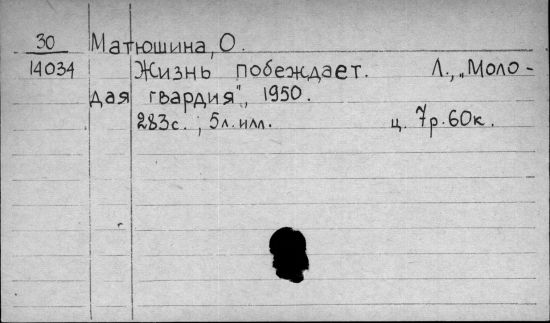 30 Матюшина, О.
14034 Жизнь побеждает. Л., „Моло-
дая гвардия", 1950.
283с. ; 5л. илл. ц. 7р. 60к.